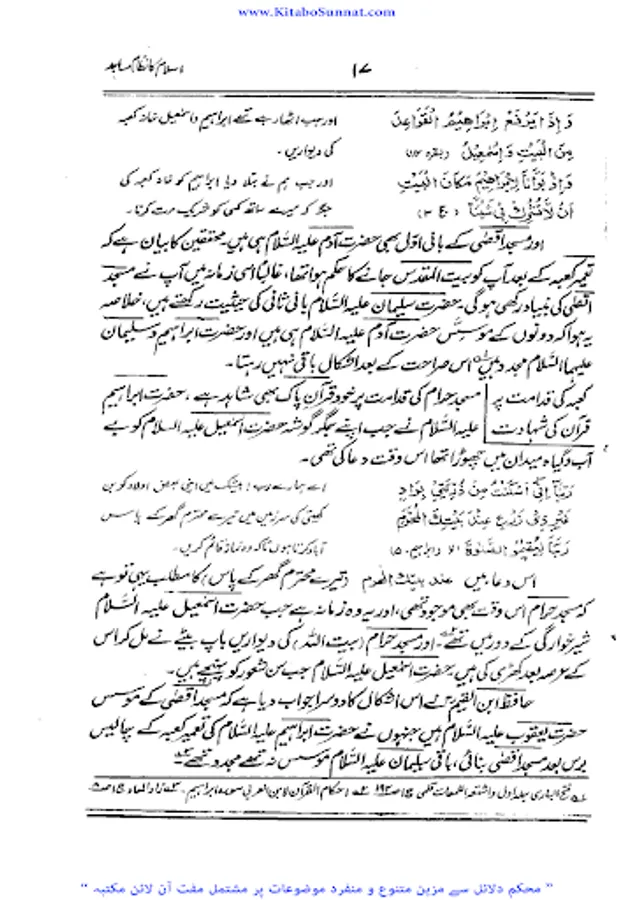 www.KitaboSunnat.com
اسلام کا نظام مساجد
۱۷
وَاِذْ يَرْفَعُ اِبْرَاهِيْمُ الْقَوَاعِدَ اور جب اٹھا رہے تھے ابراہیم و اسمٰعیل خانہ کعبہ
مِنَ الْبَيْتِ وَاِسْمٰعِيْلُ (بقرہ) کی دیواریں۔
وَاِذْ بَوَّأْنَا لِاِبْرَاهِيْمَ مَكَانَ الْبَيْتِ اور جب ہم نے بتلا دیا ابراہیم کو خانہ کعبہ کی
اَنْ لَّا تُشْرِكْ بِيْ شَيْئًا جگہ کہ میرے ساتھ کسی کو شریک مت کرنا۔
اور مسجد اقصٰی کے بانی اوّل بھی حضرت آدم علیہ السّلام ہی ہیں، محققین کا بیان ہے کہ
تعمیر کعبہ کے بعد آپ کو بیت المقدس جانے کا حکم ہوا تھا، غالباً اسی زمانہ میں آپ نے مسجد
اقصٰی کی بنیاد رکھی ہوگی، حضرت سلیمان علیہ السّلام بانی ثانی کی حیثیت رکھتے ہیں، خلاصہ
یہ ہوا کہ دونوں کے مؤسس حضرت آدم علیہ السّلام ہی ہیں اور حضرت ابراہیم و سلیمان
علیہما السّلام مجدد ہیں اس صراحت کے بعد اشکال باقی نہیں رہتا۔
کعبہ کی قدامت پر مسجد حرام کی قدامت پر خود قرآن پاک بھی شاہد ہے، حضرت ابراہیم
قرآن کی شہادت علیہ السّلام نے جب اپنے جگر گوشہ حضرت اسمٰعیل علیہ السلام کو بے
آب و گیاہ میدان میں چھوڑا تھا اس وقت دعا کی تھی۔
رَبَّنَا اِنِّيْ اَسْكَنْتُ مِنْ ذُرِّيَّتِيْ بِوَادٍ اے ہمارے رب! بیشک میں اپنی بعض اولاد کو بن
غَيْرِ ذِيْ زَرْعٍ عِنْدَ بَيْتِكَ الْمُحَرَّمِ کھیتی کی سرزمین میں تیرے محترم گھر کے پاس
رَبَّنَا لِيُقِيْمُوا الصَّلٰوةَ الآ (ابراہیم) آباد کرتا ہوں تاکہ وہ نماز قائم کریں۔
اس دعا میں عند بیتک المحرم (تیرے محترم گھر کے پاس) کا مطلب یہی تو ہے
کہ مسجد حرام اس وقت بھی موجود تھی، اور یہ وہ زمانہ ہے جب حضرت اسمٰعیل علیہ السّلام
شیر خوارگی کے دور میں تھے۔ اور مسجد حرام (بیت اللہ) کی دیواریں باپ بیٹے نے مل کر اس
کے عرصہ بعد کھڑی کی ہیں، حضرت اسمٰعیل علیہ السّلام جب سن شعور کو پہنچے ہیں۔
حافظ ابن القیمؒ نے اس اشکال کا دوسرا جواب دیا ہے کہ مسجد اقصٰی کے مؤسس
حضرت یعقوب علیہ السّلام ہیں جنہوں نے حضرت ابراہیم علیہ السّلام کی تعمیر کعبہ کے چالیس
برس بعد مسجد اقصٰی بنائی، باقی سلیمان علیہ السّلام مؤسس نہ تھے مجدد تھے
فتح الباری جلد اول و اشعۃ اللمعات قلمی احکام القرآن لابن العربی سورہ ابراہیم۔ زاد المعاد
" محکم دلائل سے مزین متنوع و منفرد موضوعات پر مشتمل مفت آن لائن مکتبہ "